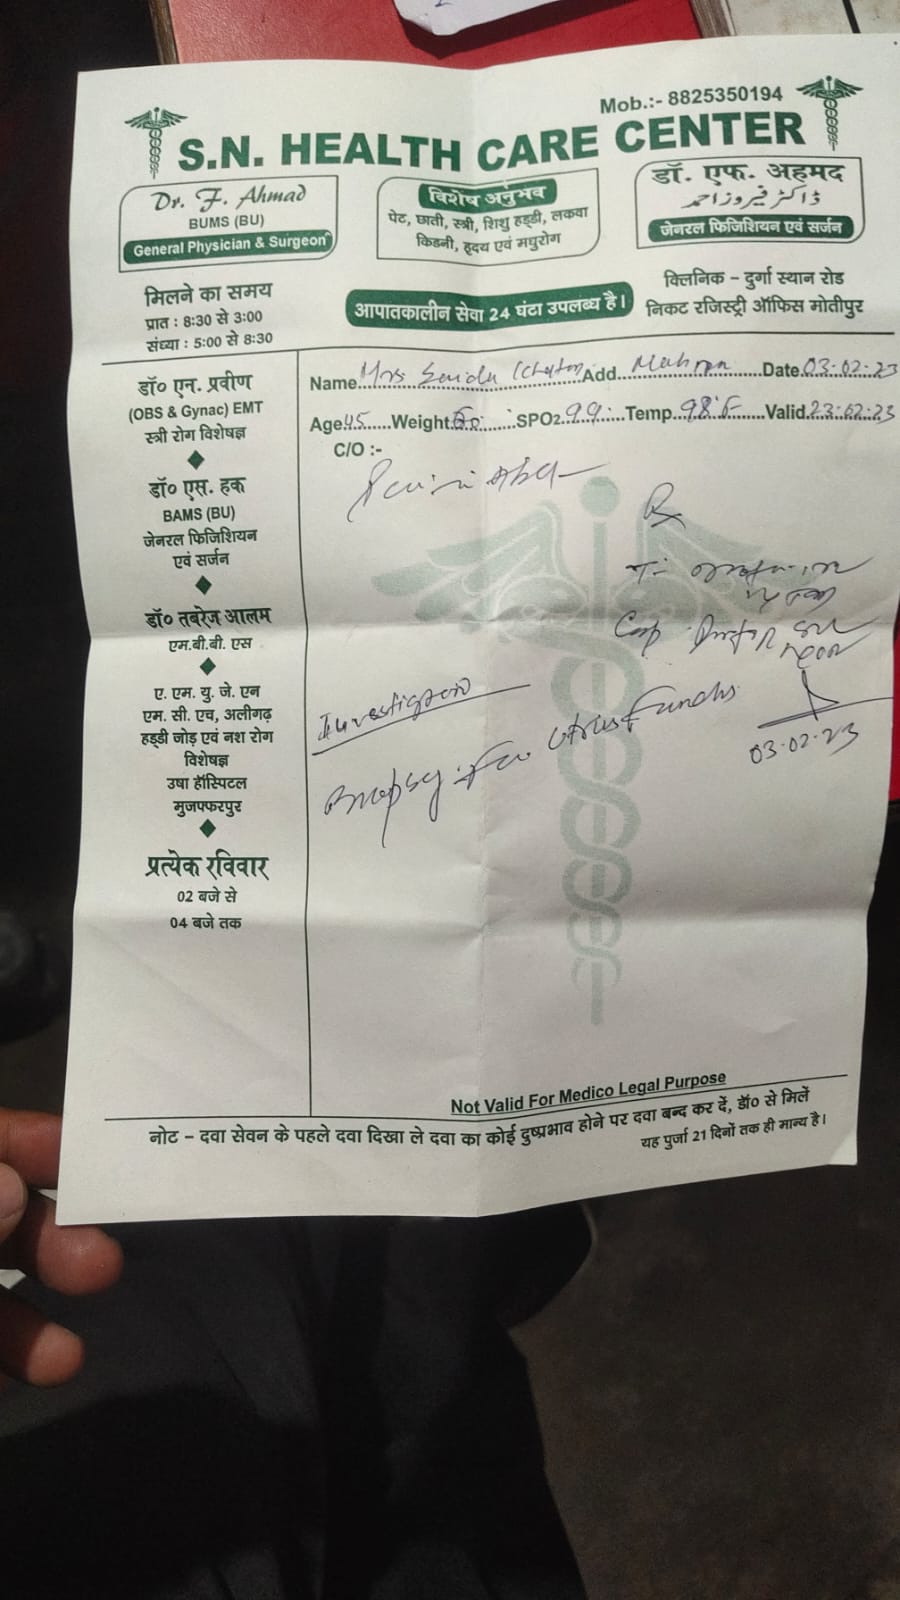 Mob.:- 8825350194
S.N. HEALTH CARE CENTER
Dr. F. Ahmad
BUMS (BU)
General Physician & Surgeon
विशेष अनुंभव
पेट, छाती, स्त्री, शिशु हड्डी, लकवा
किडनी, हृदय एवं मधुरोग
डॉ. एफ. अहमद
ڈاکٹر فیروز احمد
जेनरल फिजिशियन एवं सर्जन
मिलने का समय
प्रात : 8:30 से 3:00
संध्या : 5:00 से 8:30
आपातकालीन सेवा 24 घंटा उपलब्ध है।
क्लिनिक – दुर्गा स्थान रोड
निकट रजिस्ट्री ऑफिस मोतीपुर
Name Mrs Add. Date 03-02-23
Age 45 Weight SPO2 99 Temp. 98°F Valid 23-02-23
C/O :-
Rx
03-02-23
Investigation
Biopsy For Utrus Fundus
डॉ० एन. प्रवीण
(OBS & Gynac) EMT
स्त्री रोग विशेषज्ञ
डॉ० एस. हक
BAMS (BU)
जेनरल फिजिशियन
एवं सर्जन
डॉ० तबरेज आलम
एम.बी.बी. एस
ए. एम. यु. जे. एन
एम. सी. एच, अलीगढ़
हड्डी जोड़ एवं नश रोग
विशेषज्ञ
उषा हॉस्पिटल
मुजफ्फरपुर
प्रत्येक रविवार
02 बजे से
04 बजे तक
Not Valid For Medico Legal Purpose
नोट – दवा सेवन के पहले दवा दिखा ले दवा का कोई दुष्प्रभाव होने पर दवा बन्द कर दें, डॉ० से मिलें
यह पुर्जा 21 दिनों तक ही मान्य है।